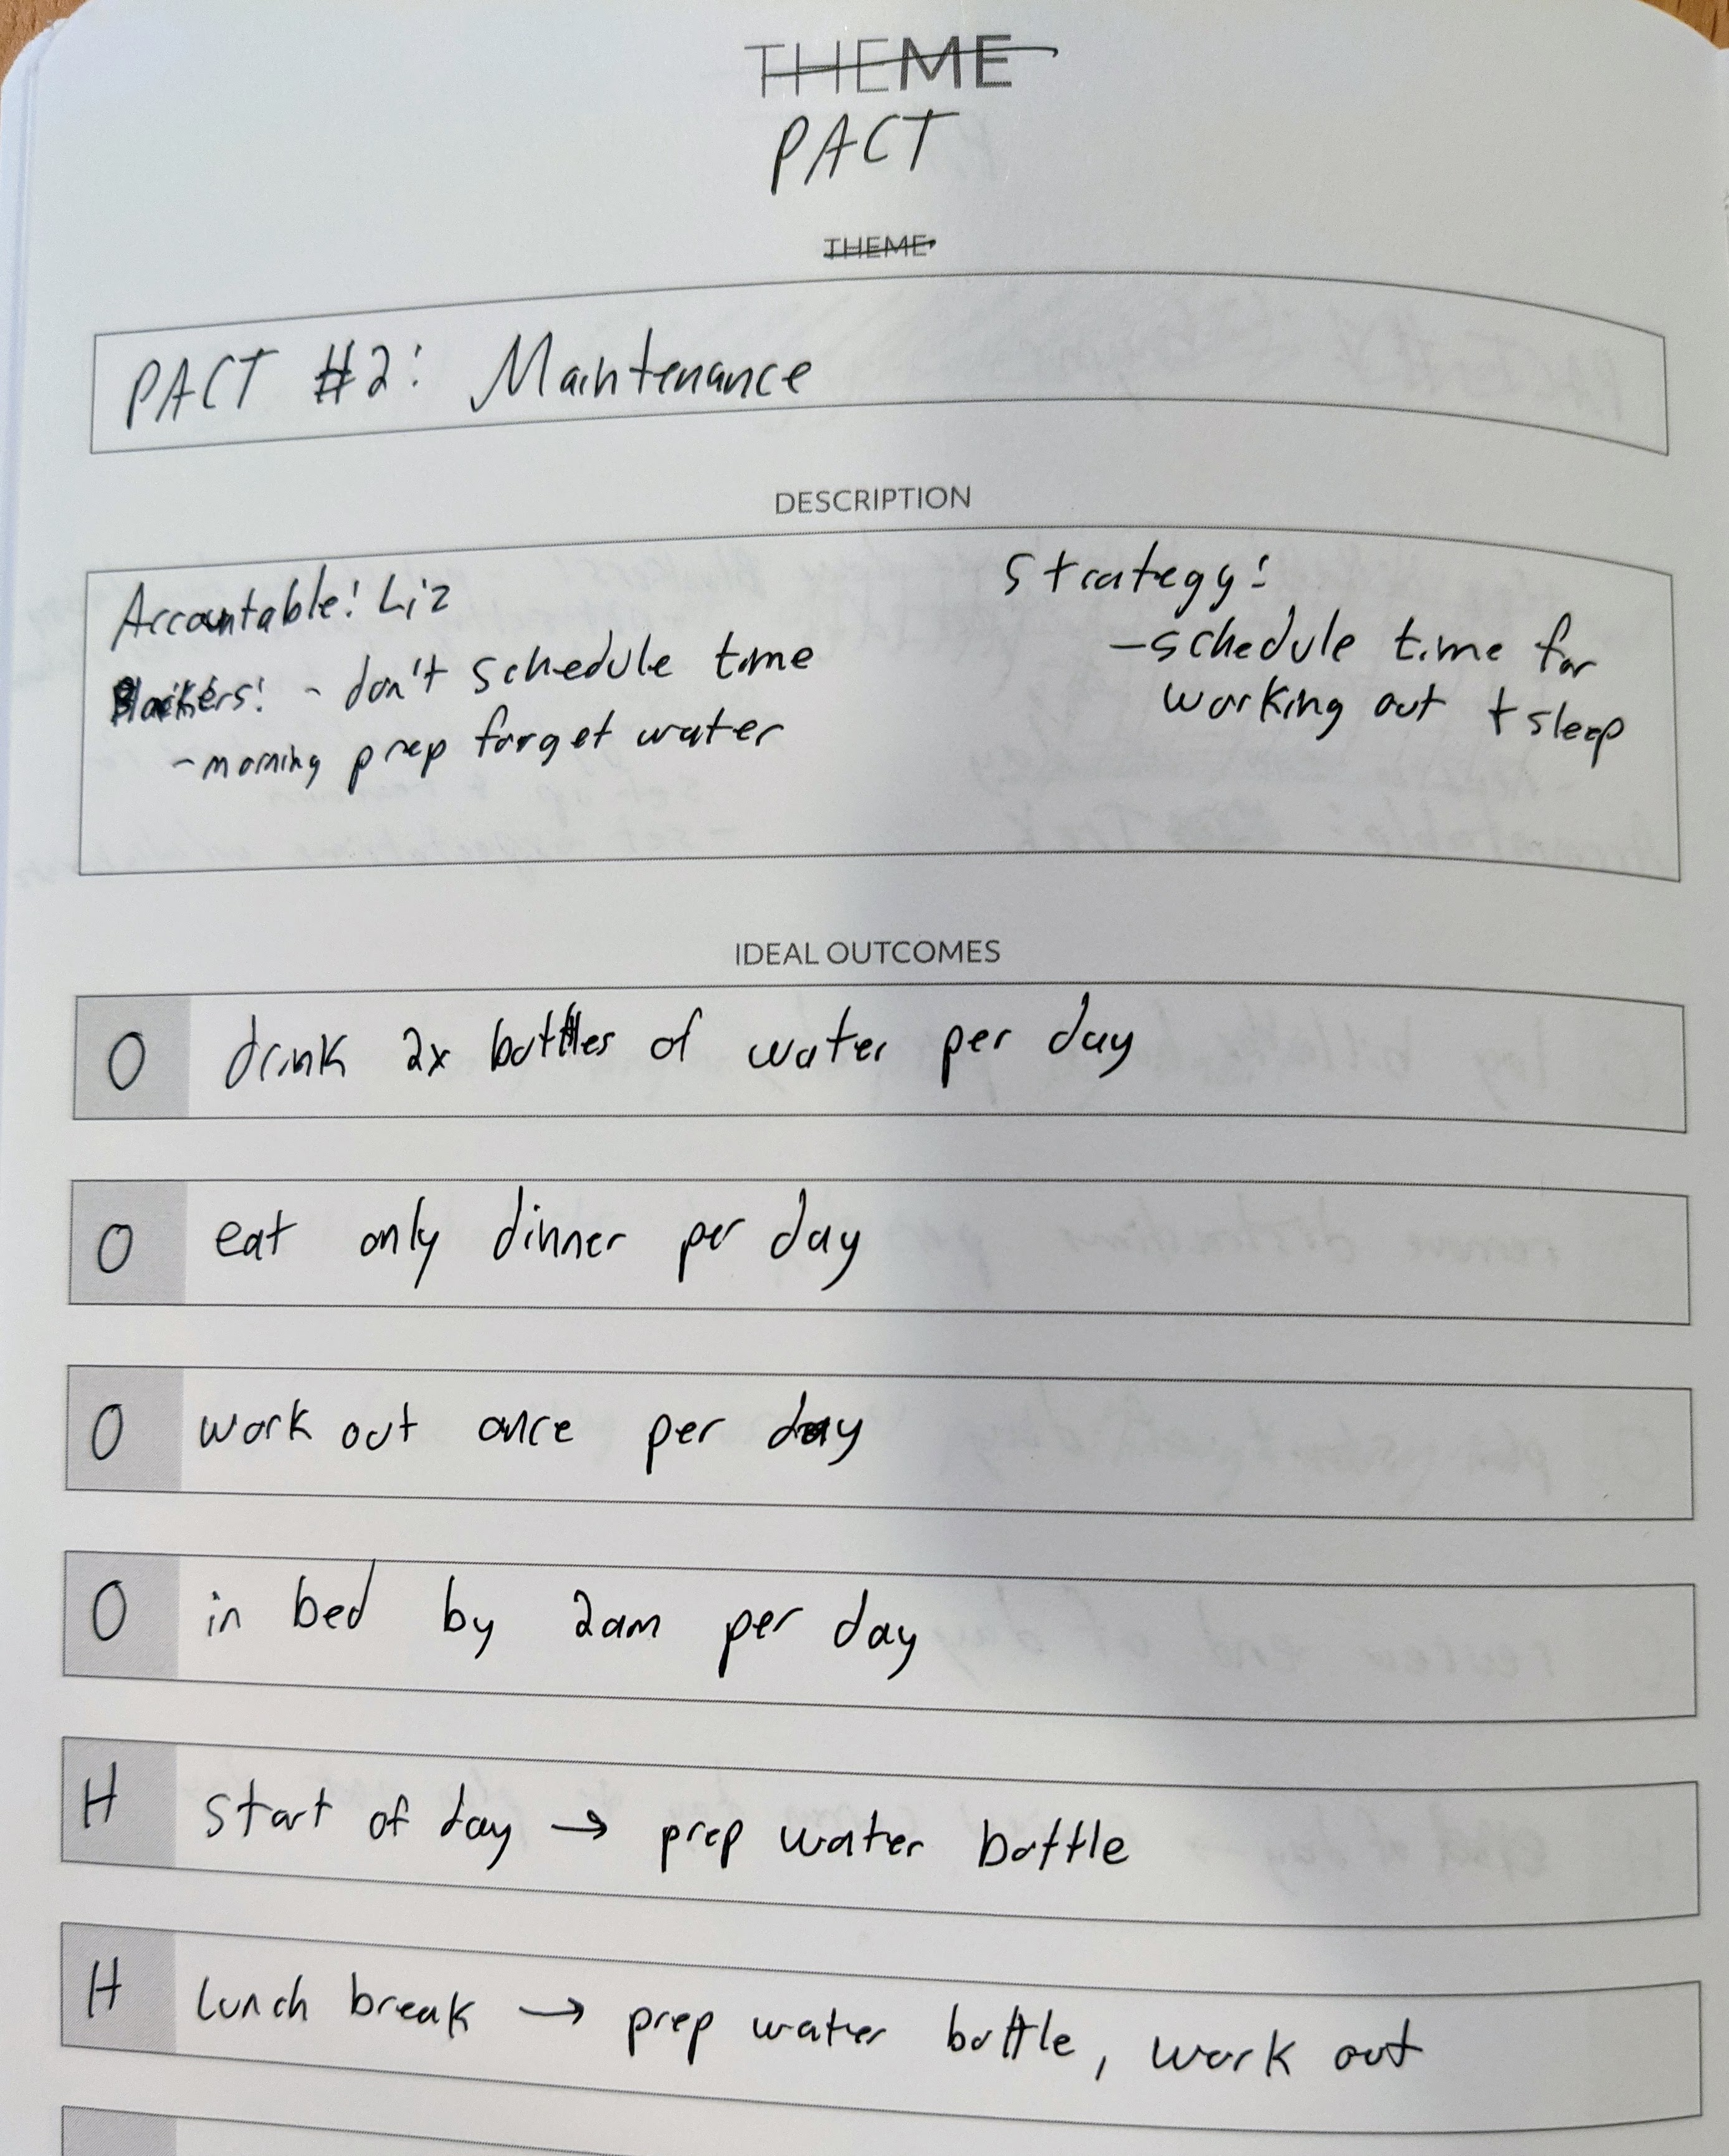 THEME
PACT
THEME
PACT #2: Maintenance
DESCRIPTION
Accountable: Liz
Blockers: - don't schedule time
- morning prep forget water
Strategy:
- schedule time for
working out + sleep
IDEAL OUTCOMES
O drink 2x bottles of water per day
O eat only dinner per day
O work out once per day
O in bed by 2am per day
H start of day → prep water bottle
H lunch break → prep water bottle, work out